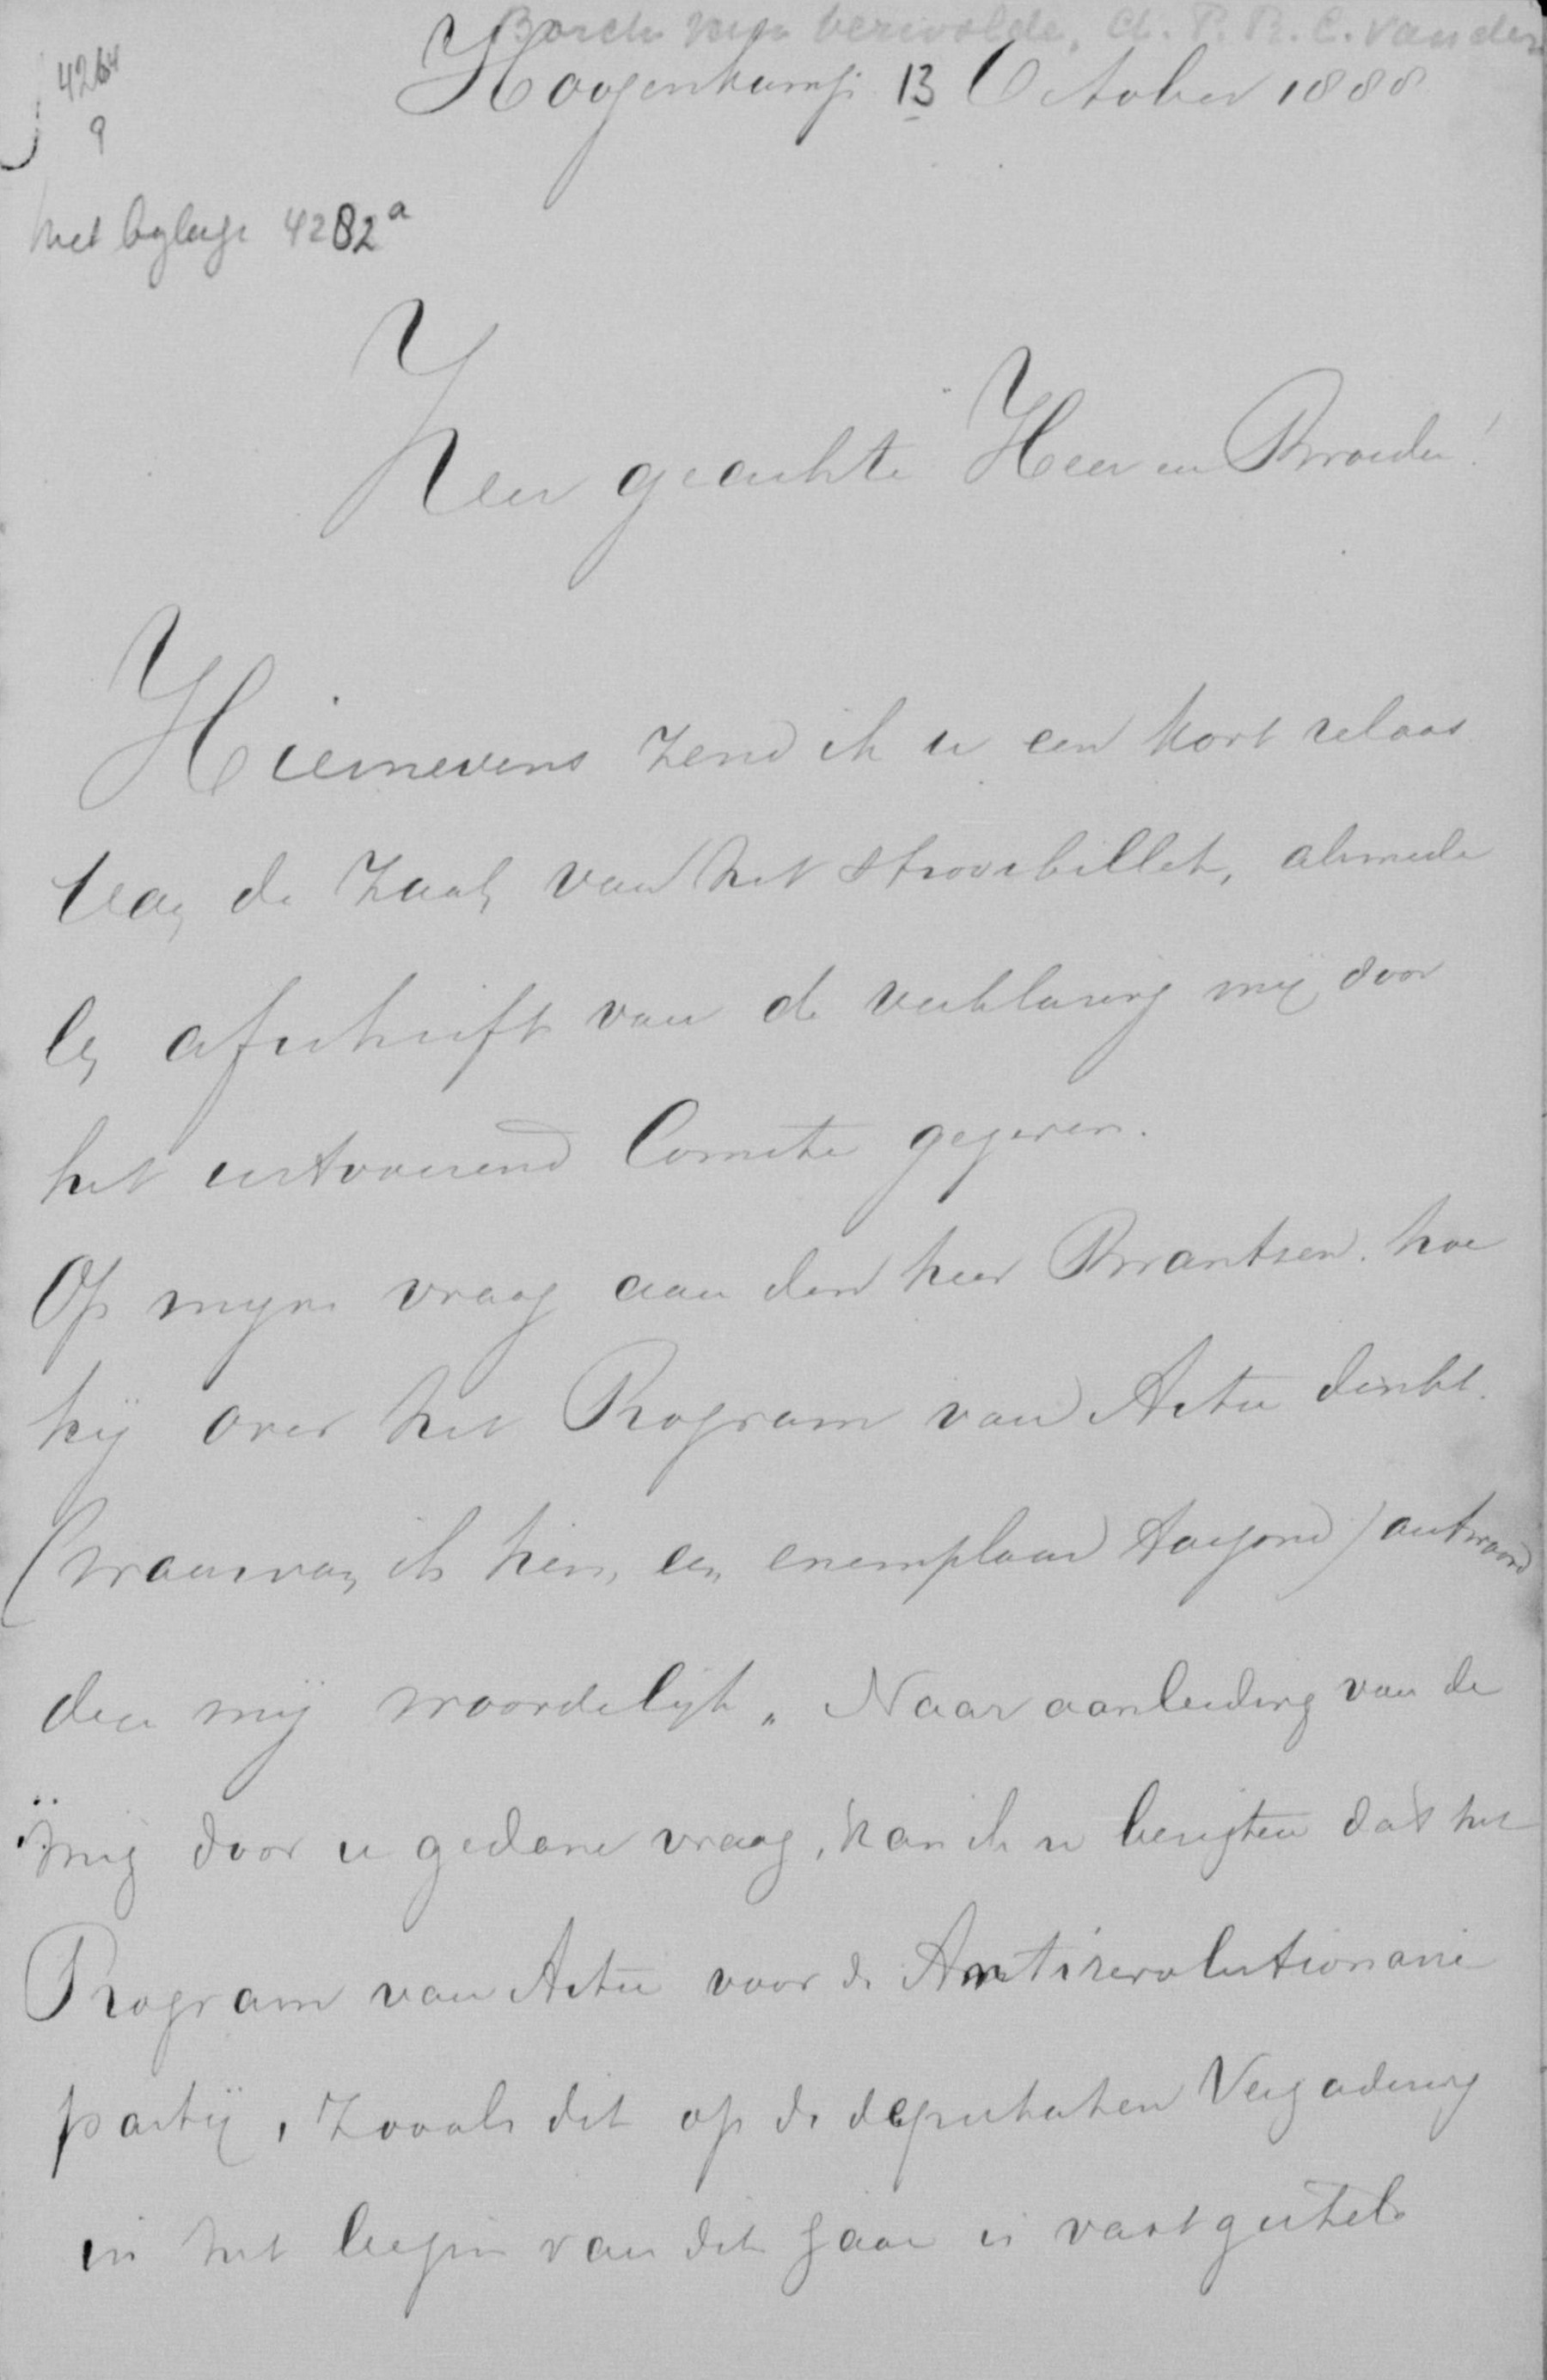 Borch van Verwolde, A. P. R. C. van der
Hoogenkamp 13 October 1888
4264
9
met bylage 4282a
Zeer geachte Heer en Broeder!
Hiernevens zend ik u een kort relaas
van de zaak van het strooibillet, alsmede
en afschrift van de verklaring mij door
het uitvoerend Comite gegeven.
Op myne vraag aan den heer Brantsen hoe
hij over het Program van Actie denkt
(waarvan ik hem een exemplaar toezond) antwoord
den mij woordelijk „Naar aanleiding van de
mij door u gedane vraag, kan ik u berigten dat het
Program van Actie voor de Antirevolutionaire
partij, zooals dit op de deputaten Vergadering
in het begin van dit jaar is vastgesteld